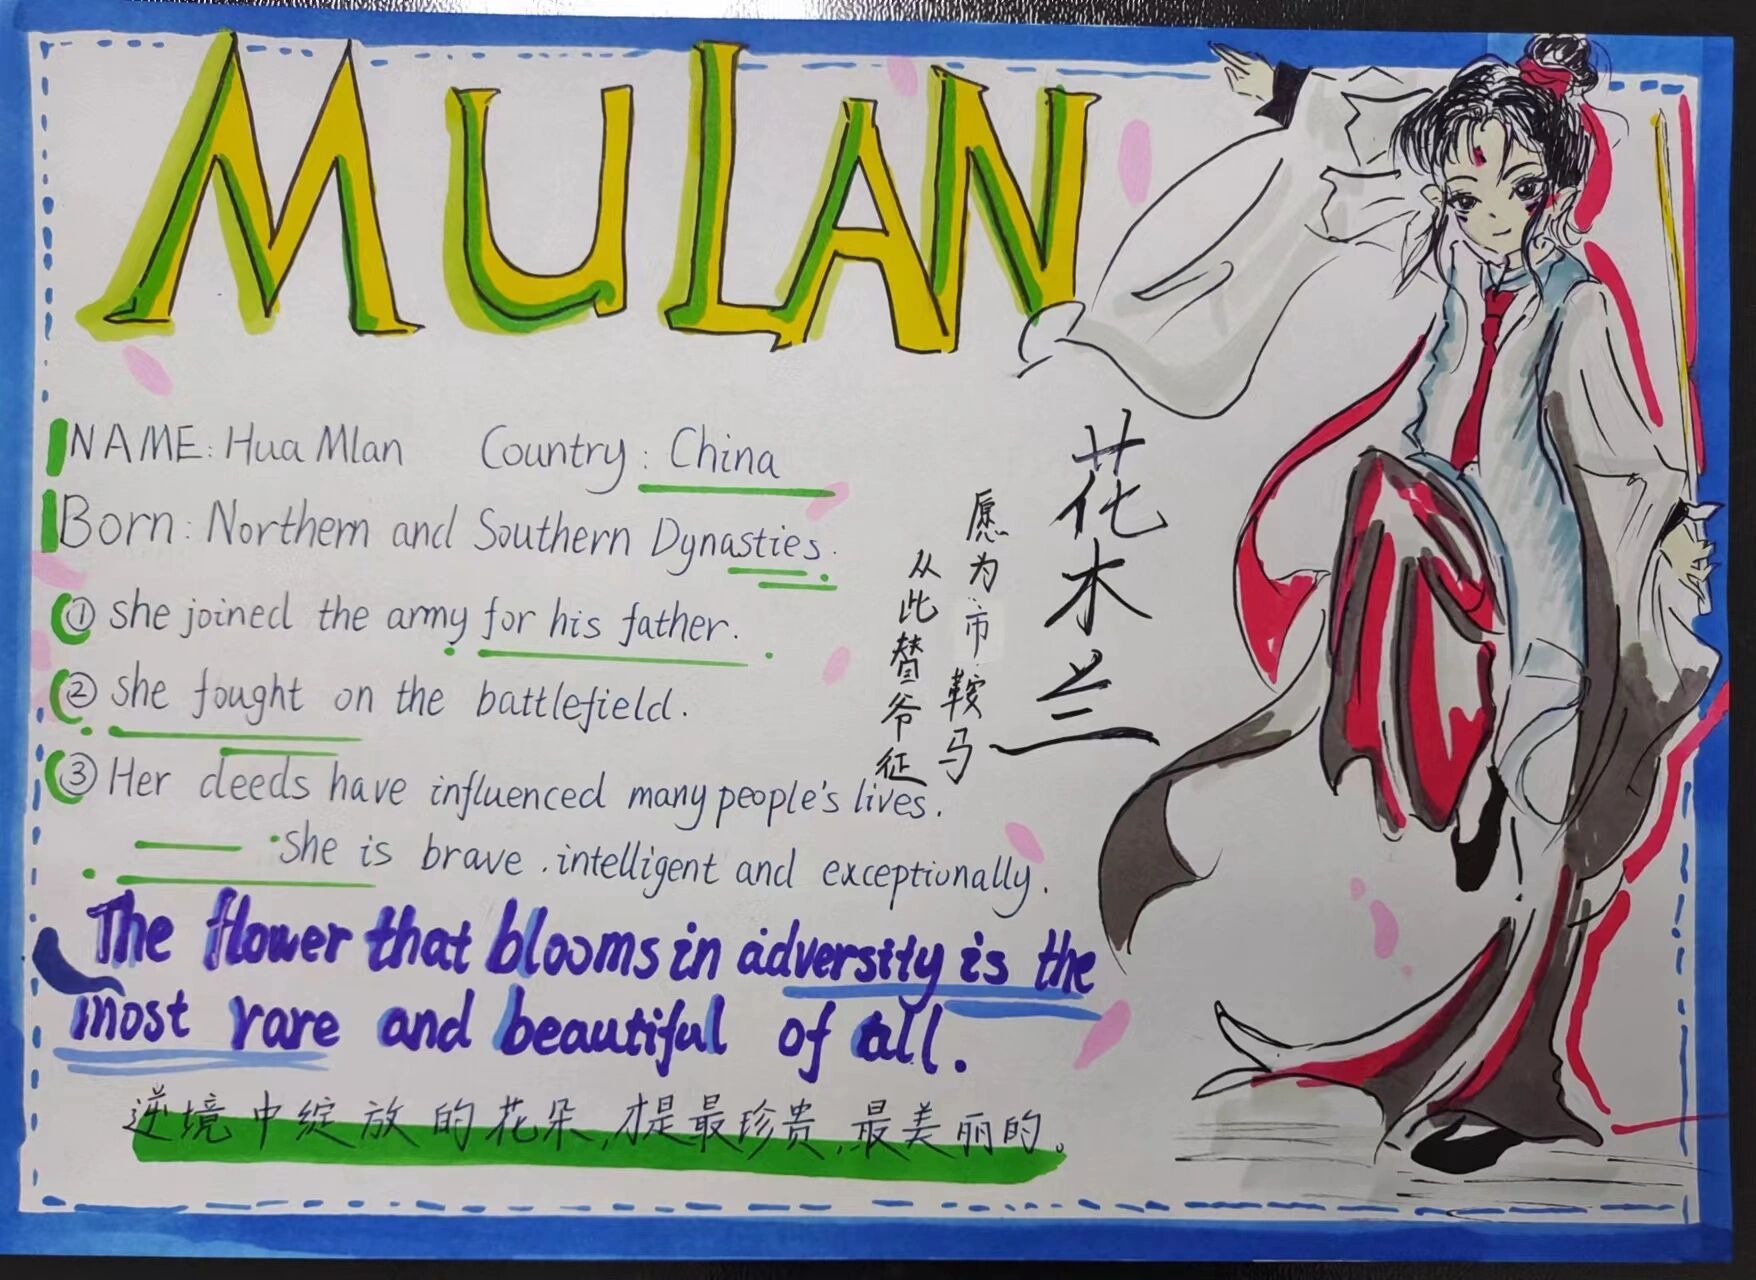 MULAN
NAME: Hua Mlan Country: China
Born: Northern and Southern Dynasties.
① she joined the army for his father.
② she fought on the battlefield.
③ Her deeds have influenced many people's lives.
She is brave . intelligent and exceptionally.
花木兰
愿为市鞍马
从此替爷征
The flower that blooms in adversity is the
most rare and beautiful of all.
逆境中绽放的花朵,才是最珍贵,最美丽的。